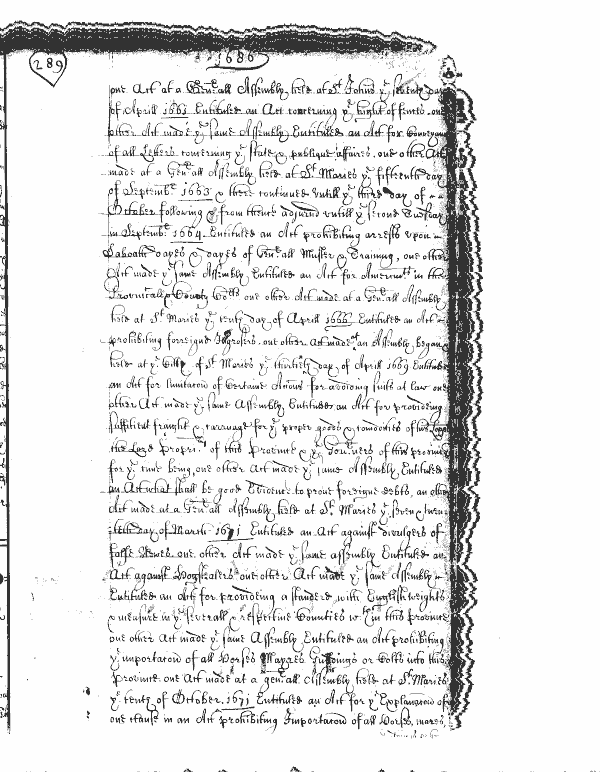 289
1686
one Act at a Gen.all Assembly held at St. Johns ye seventh day
of April 1661 Entituled an Act concerning ye hight of fences one
other Act made ye same Assembly Entituled an Act for Conveyance
of all Letters concerning ye state & publique affaires. one other Act
made at a Gen.all Assembly held at St. Maries ye fifteenth day
of Septembr. 1663 & there continued untill ye third day of
October following & from thence adjurnd untill ye second Tuesday
in Septembr. 1664 Entituled an Act prohibiting arrests upon
Sabaoth dayes & dayes of Gen.all Muster & Training, one other
Act made ye same Assembly Entituled an Act for Amerimts. in the
Provinciall & County Cotts one other Act made at a Gen.all Assembly
held at St. Maries ye tenth day of April 1666 Entituled an Act
prohibiting forreigne Ingrosers. one other Act made an Assembly began
held at ye Citty of St. Maries ye thirtieth day, of April 1669 Entituled
an Act for limitacon of Certaine Accons for avoiding suits at law one
other Act made ye same Assembly, Entituled an Act for providing
sufficient fraight & carriage for ye proper goods & comodities of his
the Lord Propri. of this Province & ye Gouvners of this province
for ye time being, one other Act made ye same Assembly Entituled
an Act what shall be good Evidence to prove forreigne debts, an other
Act made at a Gen.all Assembly held at St. Maries ye seven & twen
tieth day of March 1671 Entituled an Act against divulgers of
false Newes. one other Act made ye same assembly Entituled an
Act against Hogstealers one other Act made ye same Assembly
Entituled an Act for providing a standerd with English weights
& measure in ye severall & respective Counties wth.in this Province
one other Act made ye same Assembly Entituled an Act prohibiting
ye importacon of all Horses Mayres Guldings or Colts into this
Province. one Act made at a gen.all Assembly held at St. Maries
ye tenth of October. 1671 Entituled an Act for ye Explanacon of
one clause in an Act prohibiting Importacon of all Horses, mares,